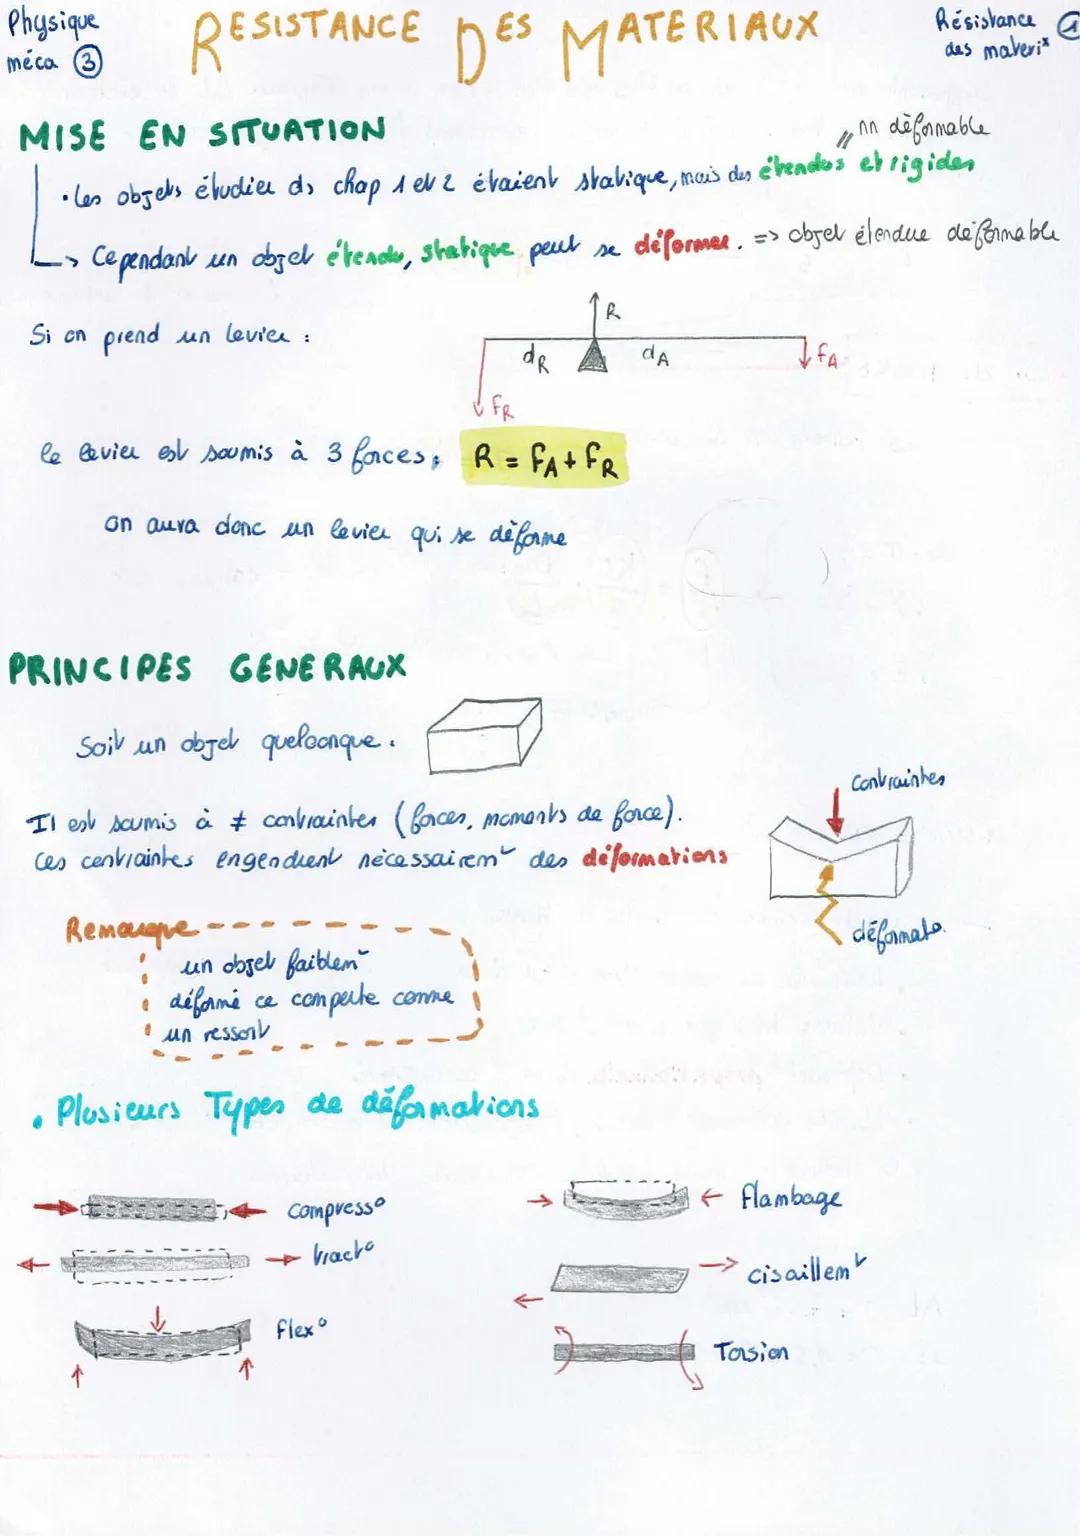 Physique
méca ③
RESISTANCE DES MATERIAUX
Résistance ①
des materiˣ
MISE EN SITUATION
nn déformable
• les objets étudier ds chap 1 et 2 étaient statique, mais des étendus et rigides
↳ Cependant un objet étendu, statique peut se déformer. => objet étendue déformable
Si on prend un levier :
R
dR
dA
FA
FR
le levier est soumis à 3 forces; R = FA + FR
on aura donc un levier qui se déforme
PRINCIPES GENERAUX
Soit un objet quelconque.
Contraintes
Il est soumis à ≠ contraintes (forces, moments de force).
Ces contraintes engendrent nécessairemᵗ des déformations
déformatº.
Remarque
un objet faiblemᵗ
déformé ce comporte comme
un ressort
• Plusieurs Types de déformations
compressº
tractº
flexº
flambage
cisaillemᵗ
Torsion